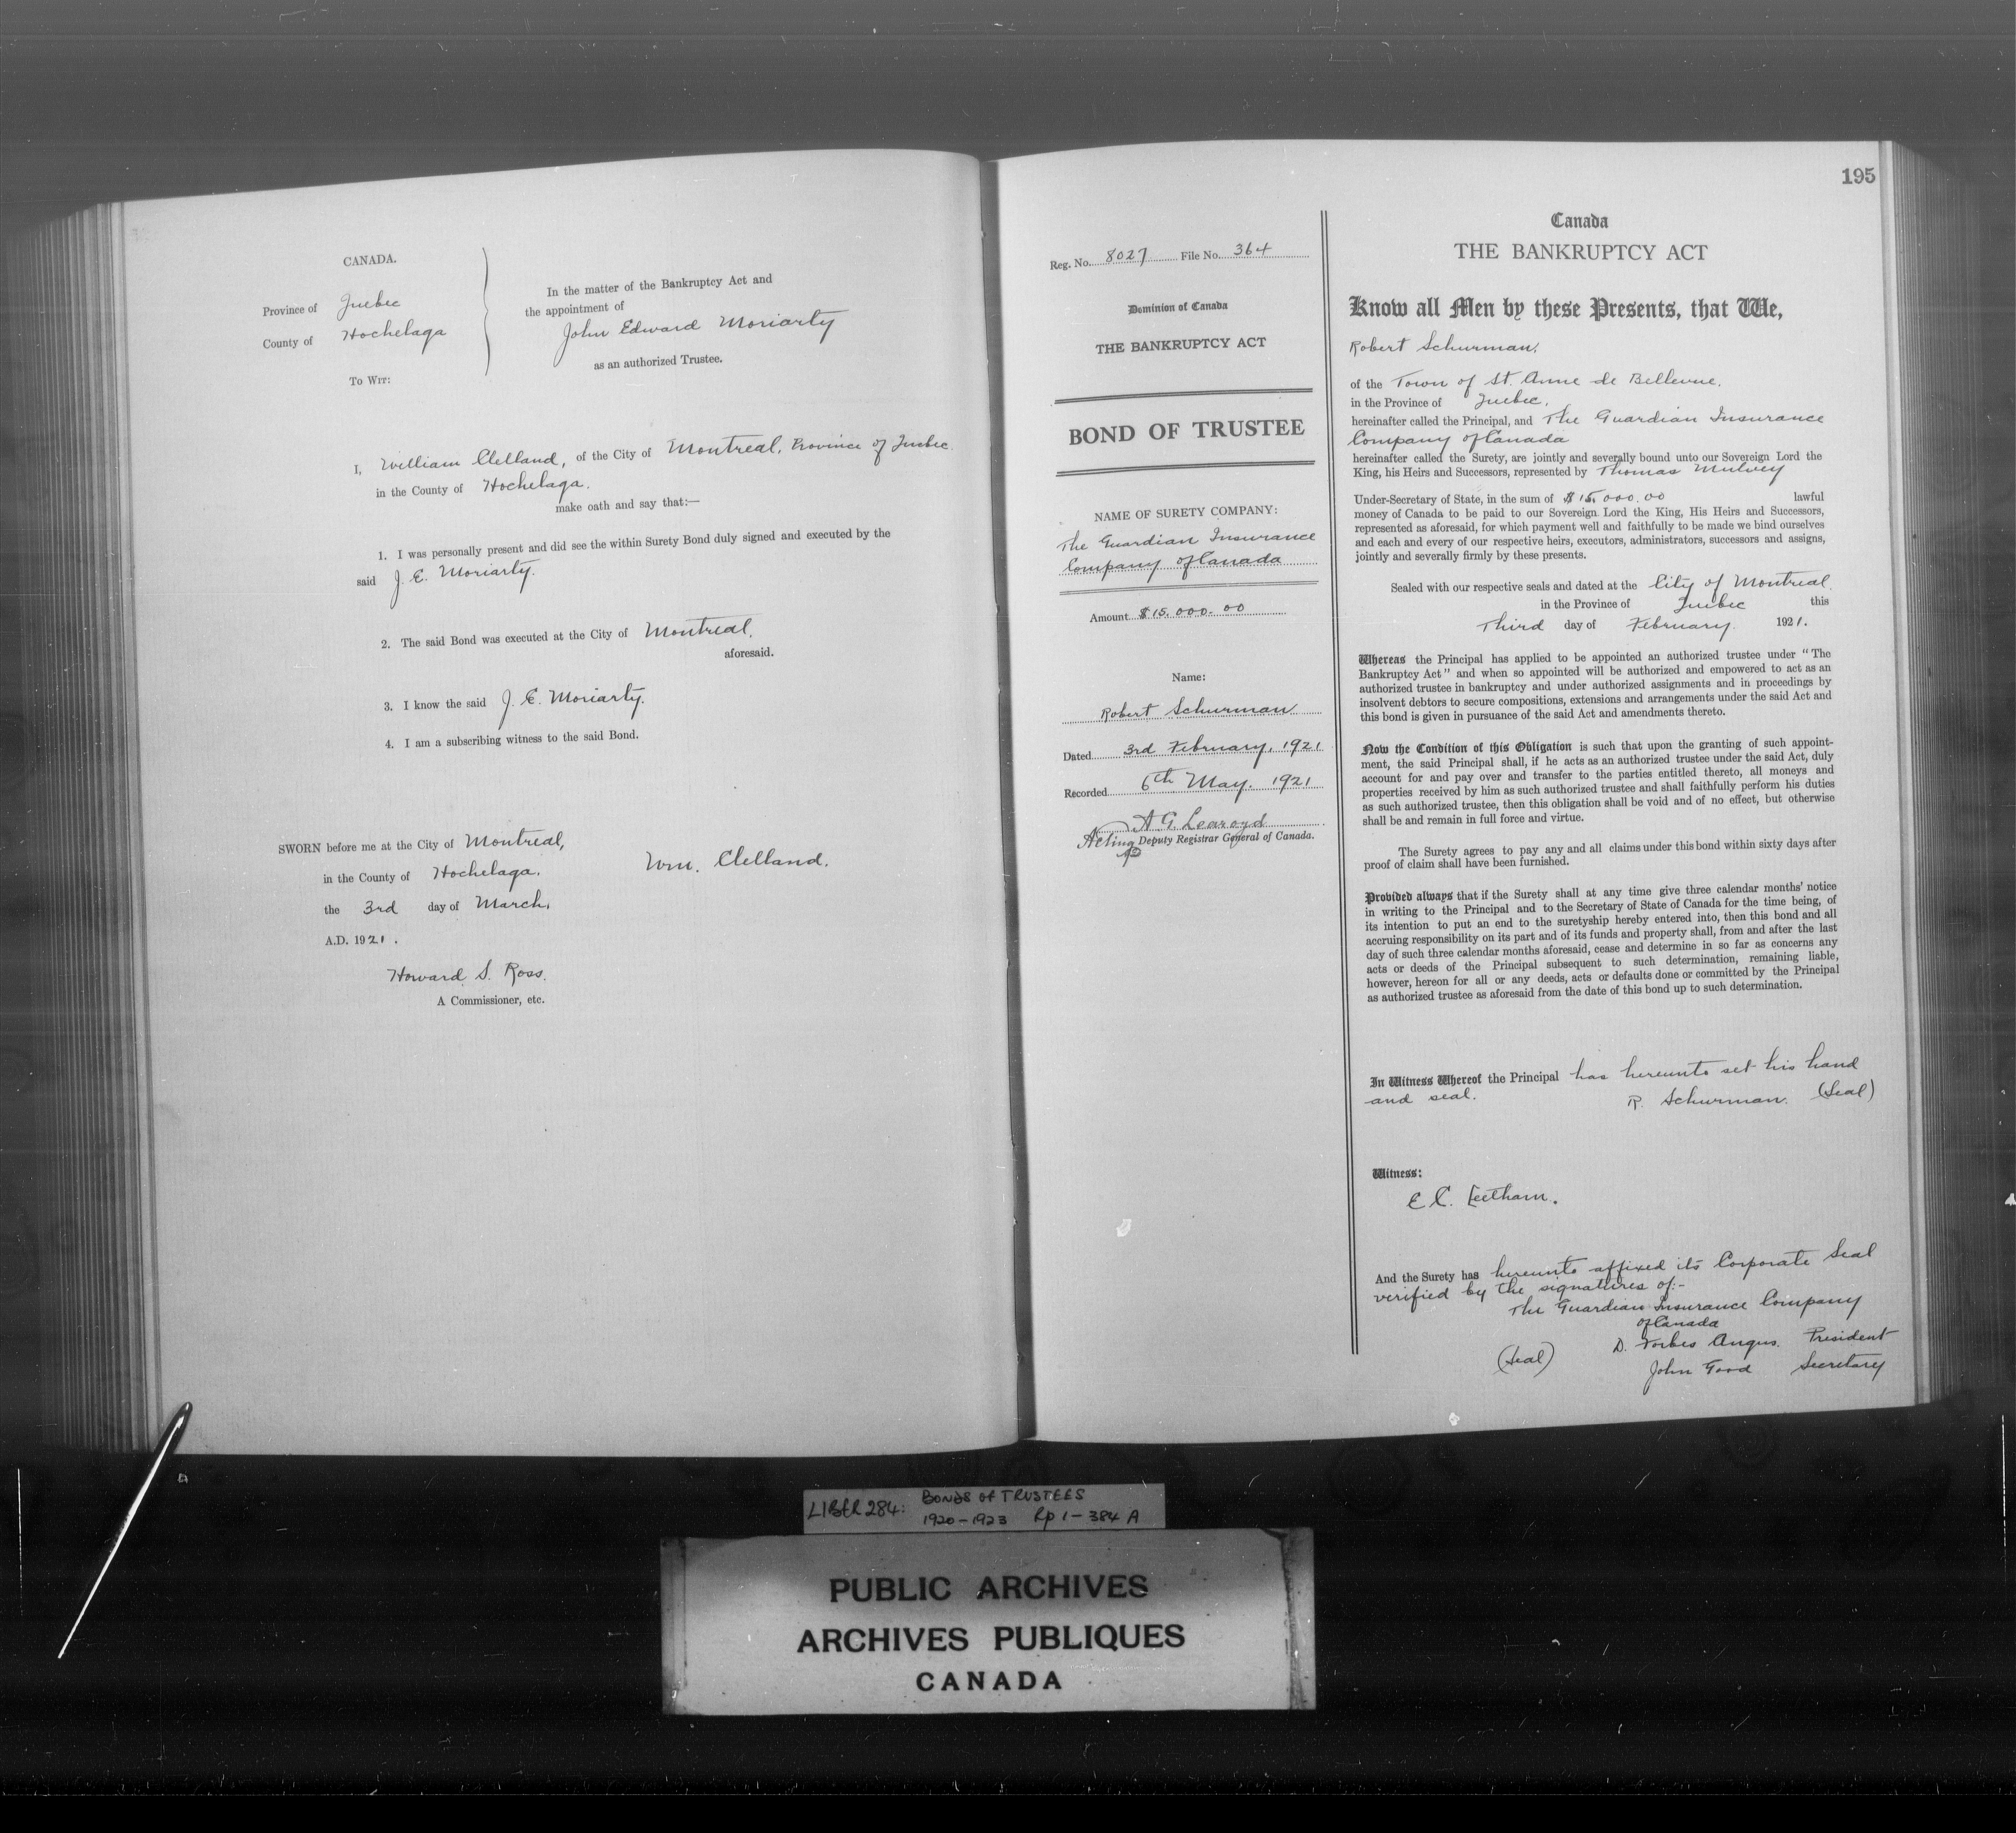 CANADA.
Province of Quebec
County of Hochelaga
To Wit:
In the matter of the Bankruptcy Act and
the appointment of
John Edward Moriarty
as an authorized Trustee.
I, William Clelland, of the City of Montreal, Province of Quebec
in the County of Hochelaga.
make oath and say that:—
1. I was personally present and did see the within Surety Bond duly signed and executed by the
said J. E. Moriarty.
2. The said Bond was executed at the City of Montreal,
aforesaid.
3. I know the said J. E. Moriarty.
4. I am a subscribing witness to the said Bond.
SWORN before me at the City of Montreal,
in the County of Hochelaga.
the 3rd day of March,
A.D. 1921.
Wm. Clelland.
Howard S. Ross.
A Commissioner, etc.
Reg. No. 8027 File No. 364
Dominion of Canada
THE BANKRUPTCY ACT
BOND OF TRUSTEE
NAME OF SURETY COMPANY:
The Guardian Insurance
Company of Canada
Amount $15.000.00
Name:
Robert Schurman
Dated 3rd February, 1921
Recorded 6th May. 1921
A G Learoyd
Acting Deputy Registrar General of Canada.
195
Canada
THE BANKRUPTCY ACT
Know all Men by these Presents, that We,
Robert Schurman,
of the Town of St. Anne de Bellevue,
in the Province of Quebec,
hereinafter called the Principal, and The Guardian Insurance
Company of Canada
hereinafter called the Surety, are jointly and severally bound unto our Sovereign Lord the
King, his Heirs and Successors, represented by Thomas Mulvey
Under-Secretary of State, in the sum of $15,000.00 lawful
money of Canada to be paid to our Sovereign Lord the King, His Heirs and Successors,
represented as aforesaid, for which payment well and faithfully to be made we bind ourselves
and each and every of our respective heirs, executors, administrators, successors and assigns,
jointly and severally firmly by these presents.
Sealed with our respective seals and dated at the City of Montreal
in the Province of Quebec this
Third day of February. 1921.
Whereas the Principal has applied to be appointed an authorized trustee under "The
Bankruptcy Act" and when so appointed will be authorized and empowered to act as an
authorized trustee in bankruptcy and under authorized assignments and in proceedings by
insolvent debtors to secure compositions, extensions and arrangements under the said Act and
this bond is given in pursuance of the said Act and amendments thereto.
Now the Condition of this Obligation is such that upon the granting of such appoint-
ment, the said Principal shall, if he acts as an authorized trustee under the said Act, duly
account for and pay over and transfer to the parties entitled thereto, all moneys and
properties received by him as such authorized trustee and shall faithfully perform his duties
as such authorized trustee, then this obligation shall be void and of no effect, but otherwise
shall be and remain in full force and virtue.
The Surety agrees to pay any and all claims under this bond within sixty days after
proof of claim shall have been furnished.
Provided always that if the Surety shall at any time give three calendar months' notice
in writing to the Principal and to the Secretary of State of Canada for the time being, of
its intention to put an end to the suretyship hereby entered into, then this bond and all
accruing responsibility on its part and of its funds and property shall, from and after the last
day of such three calendar months aforesaid, cease and determine in so far as concerns any
acts or deeds of the Principal subsequent to such determination, remaining liable,
however, hereon for all or any deeds, acts or defaults done or committed by the Principal
as authorized trustee as aforesaid from the date of this bond up to such determination.
In Witness Whereof the Principal has hereunto set his hand
and seal.
R. Schurman. (Seal)
Witness:
E. C. Leetham.
And the Surety has hereunto affixed its Corporate Seal
verified by the signatures of:-
The Guardian Insurance Company
of Canada
D. Forbes Angus. President
(Seal)
John Good Secretary
LIBER 284: BONDS OF TRUSTEES
1920-1923 Rp 1-384 A
PUBLIC ARCHIVES
ARCHIVES PUBLIQUES
CANADA